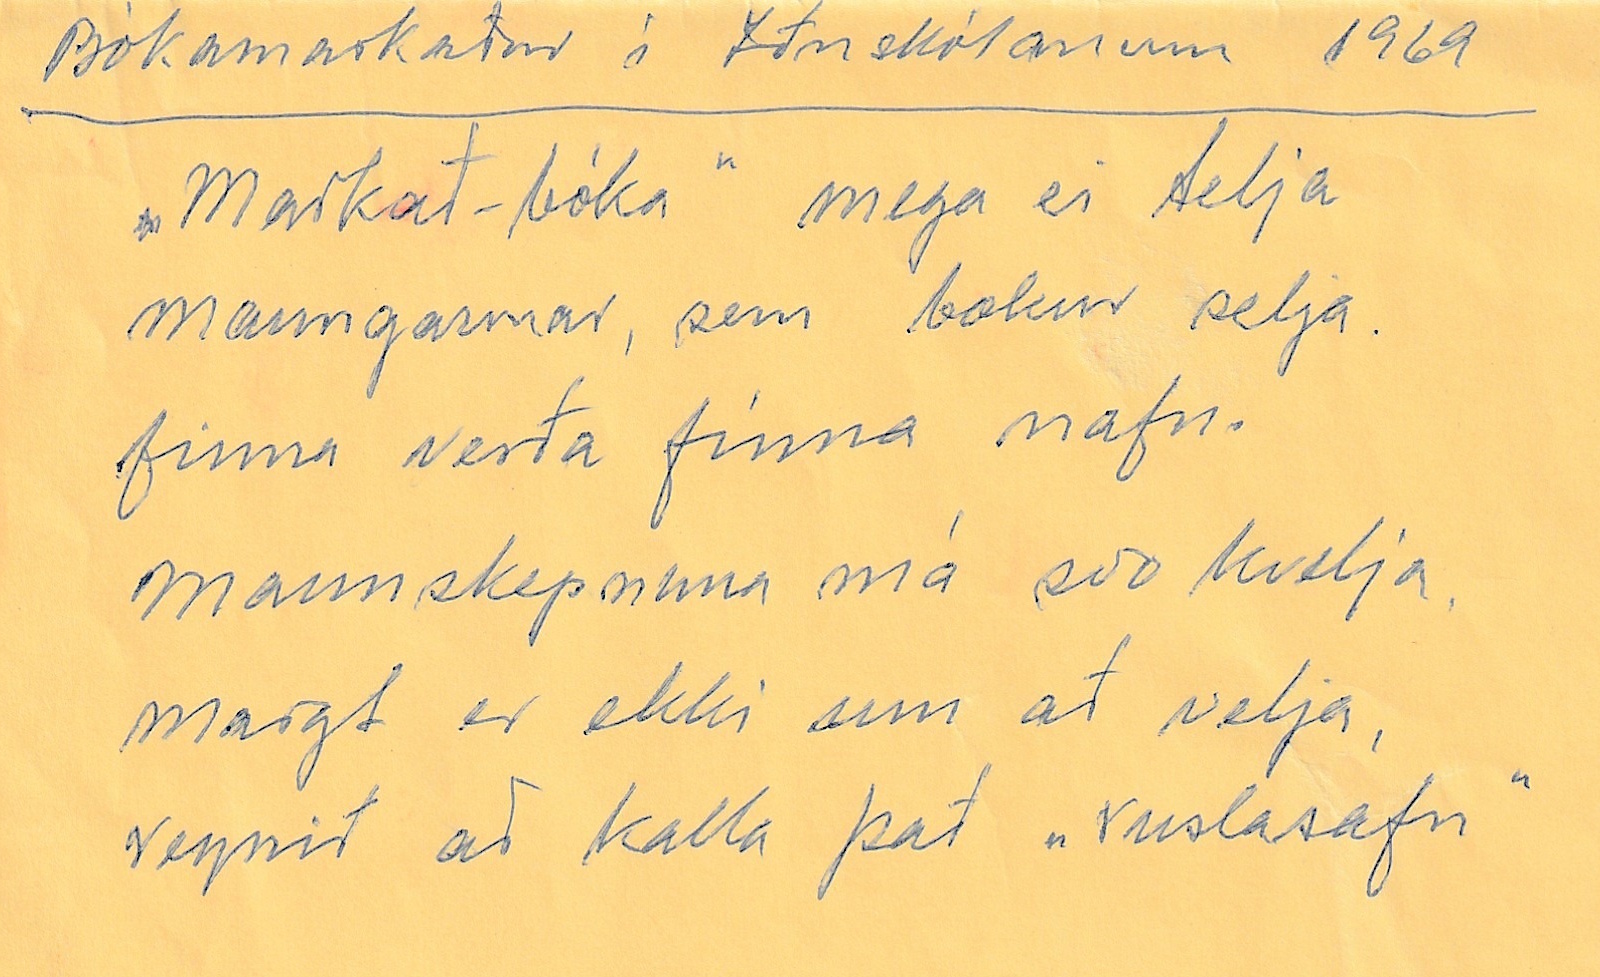 Bókamarkaður í Iðnskólanum 1969
„Markað-bóka“ mega ei telja
maungarmar, sem bokur selja.
finna verða fínna nafn.
Maunskepnuna má svo kvelja.
margt er ekki um að velja,
reynið að kalla það „ruslasafn“